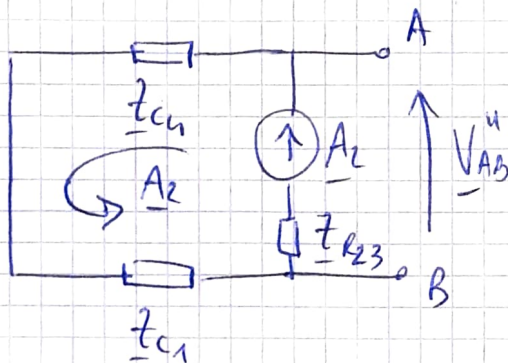 A
Z_C4
A_2
A_2
V_AB"
Z_R23
B
Z_C1